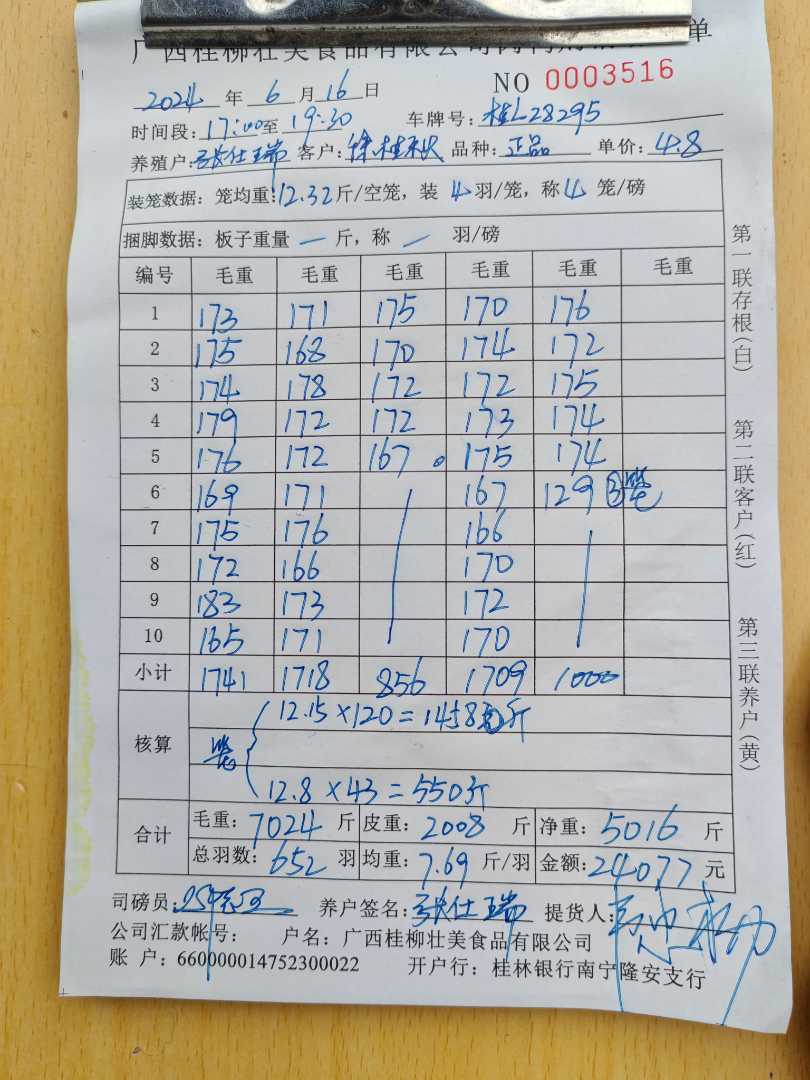 NO 0003516
2024 年 6 月 16 日
时间段: 17:00 至 19:30 车牌号: 桂L28295
养殖户: 张仕瑞 客户: 徐桂秋 品种: 正品 单价: 4.8
装笼数据: 笼均重: 12.32 斤/空笼, 装 4 羽/笼, 称 4 笼/磅
捆脚数据: 板子重量 — 斤, 称 — 羽/磅
编号 毛重 毛重 毛重 毛重 毛重 毛重
1 173 171 175 170 176
2 175 168 170 174 172
3 174 178 172 172 175
4 179 172 172 173 174
5 176 172 167 。 175 174
6 169 171 167 129 ③笼
7 175 176 166
8 172 166 170
9 183 173 172
10 165 171 170
小计 1741 1718 856 1709 1000
核算 笼
12.15×120=1458斤
12.8×43=550斤
合计
毛重: 7024 斤 皮重: 2008 斤 净重: 5016 斤
总羽数: 652 羽 均重: 7.69 斤/羽 金额: 24077 元
司磅员: 养户签名: 张仕瑞 提货人:
公司汇款帐号: 户名: 广西桂柳壮美食品有限公司
账 户: 660000014752300022 开户行: 桂林银行南宁隆安支行
第一联存根(白) 第二联客户(红) 第三联养户(黄)